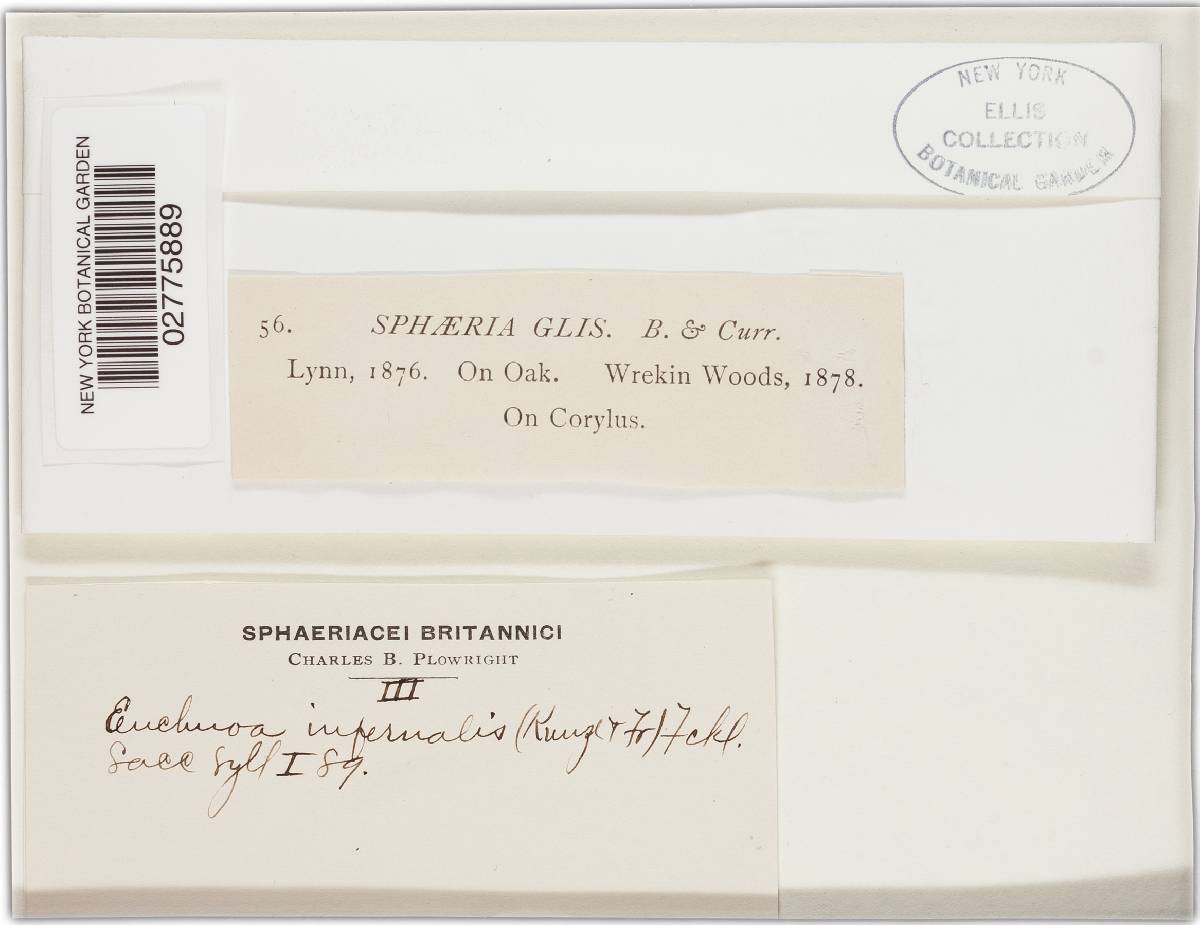 NEW YORK
ELLIS
COLLECTION
BOTANICAL GARDEN
NEW YORK BOTANICAL GARDEN
02775889
56. SPHÆRIA GLIS. B. & Curr.
Lynn, 1876. On Oak. Wrekin Woods, 1878.
On Corylus.
SPHAERIACEI BRITANNICI
CHARLES B. PLOWRIGHT
III
Enchnoa infernalis (Kunze & Fr) Fckl.
Sacc Syll I 89.